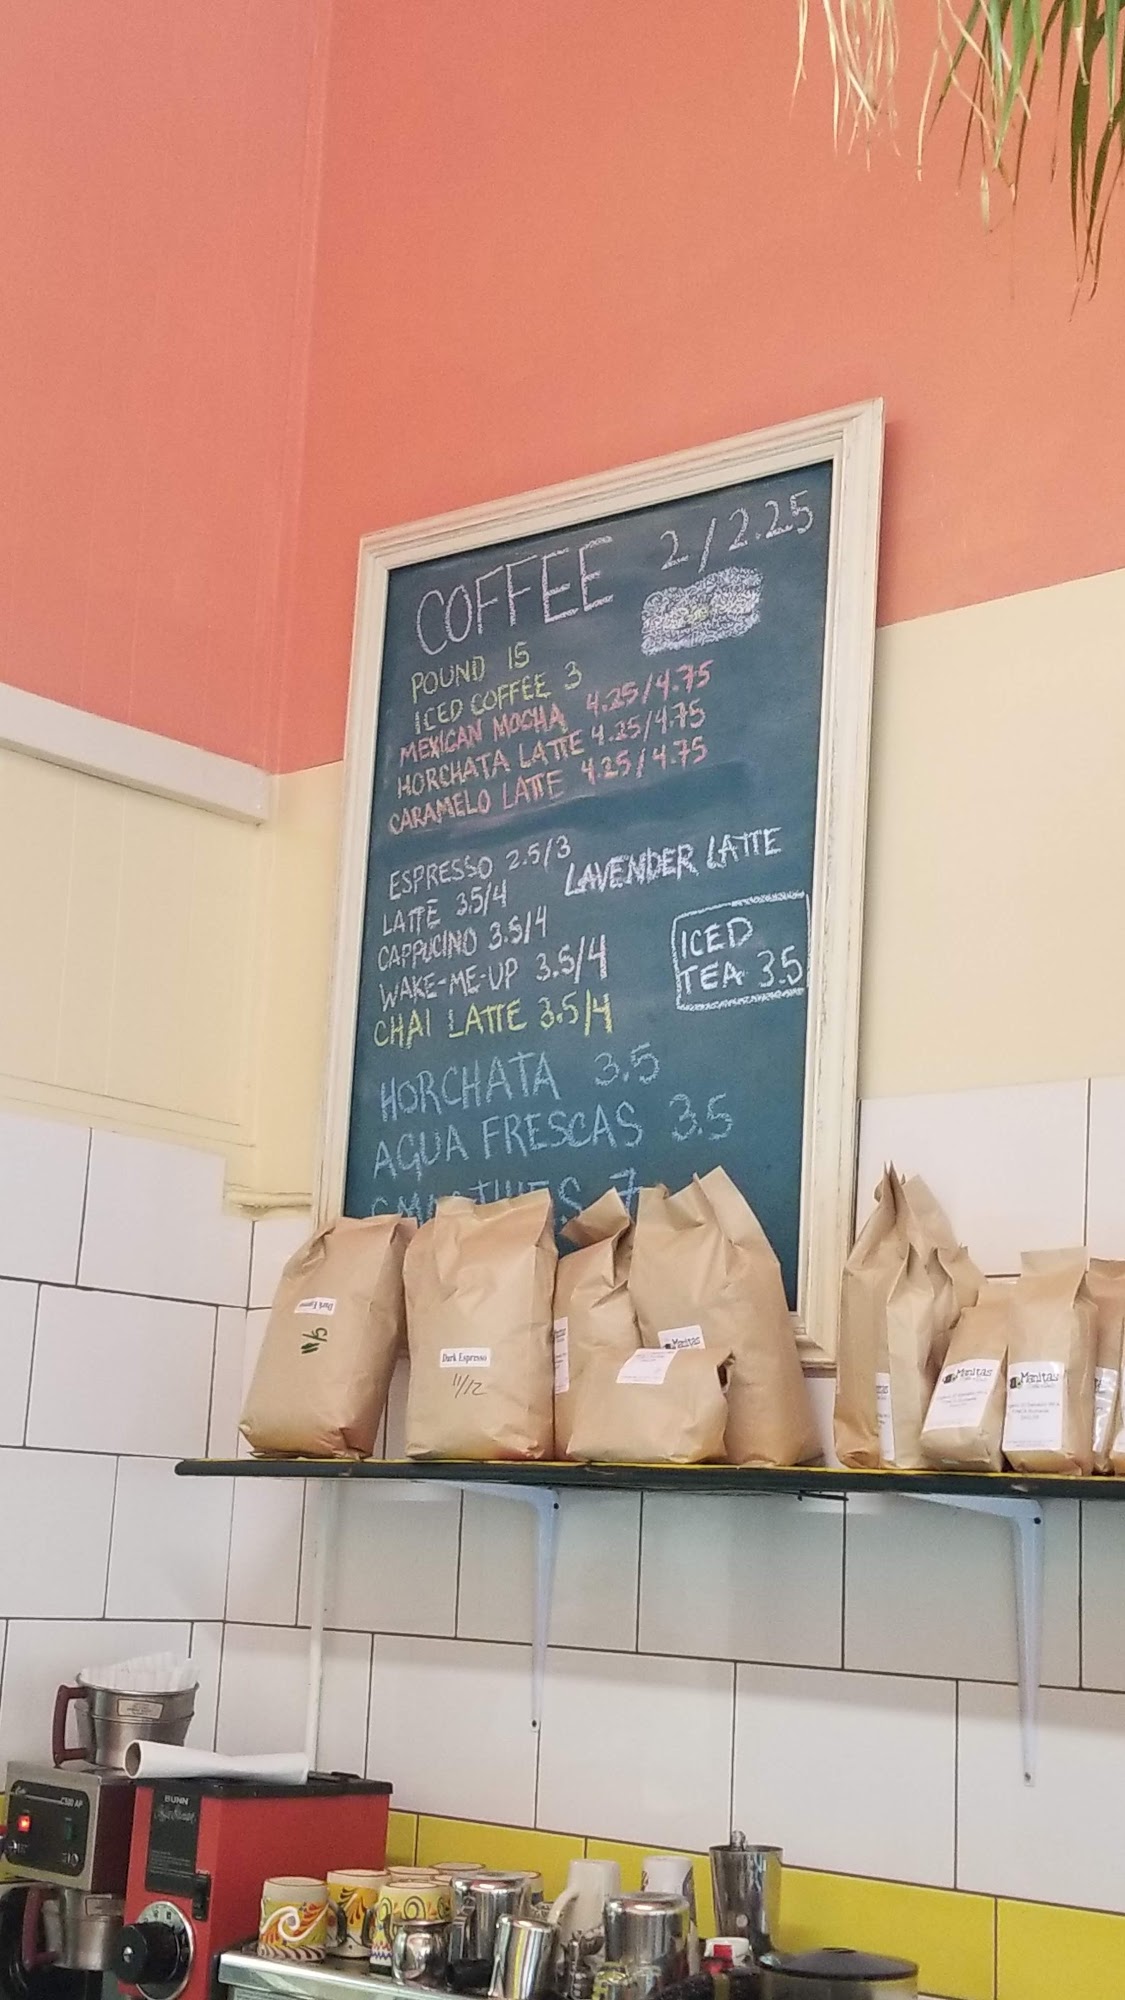 COFFEE 2/2.25
POUND 15
ICED COFFEE 3
MEXICAN MOCHA 4.25/4.75
HORCHATA LATTE 4.25/4.75
CARAMELO LATTE 4.25/4.75
ESPRESSO 2.5/3
LAVENDER LATTE
LATTE 3.5/4
CAPPUCINO 3.5/4
WAKE-ME-UP 3.5/4
CHAI LATTE 3.5/4
ICED
TEA 3.5
HORCHATA 3.5
AGUA FRESCAS 3.5
7
Dark Espresso
11/5
Dark Espresso
11/12
Manitas
Manitas
Manitas
BUNN